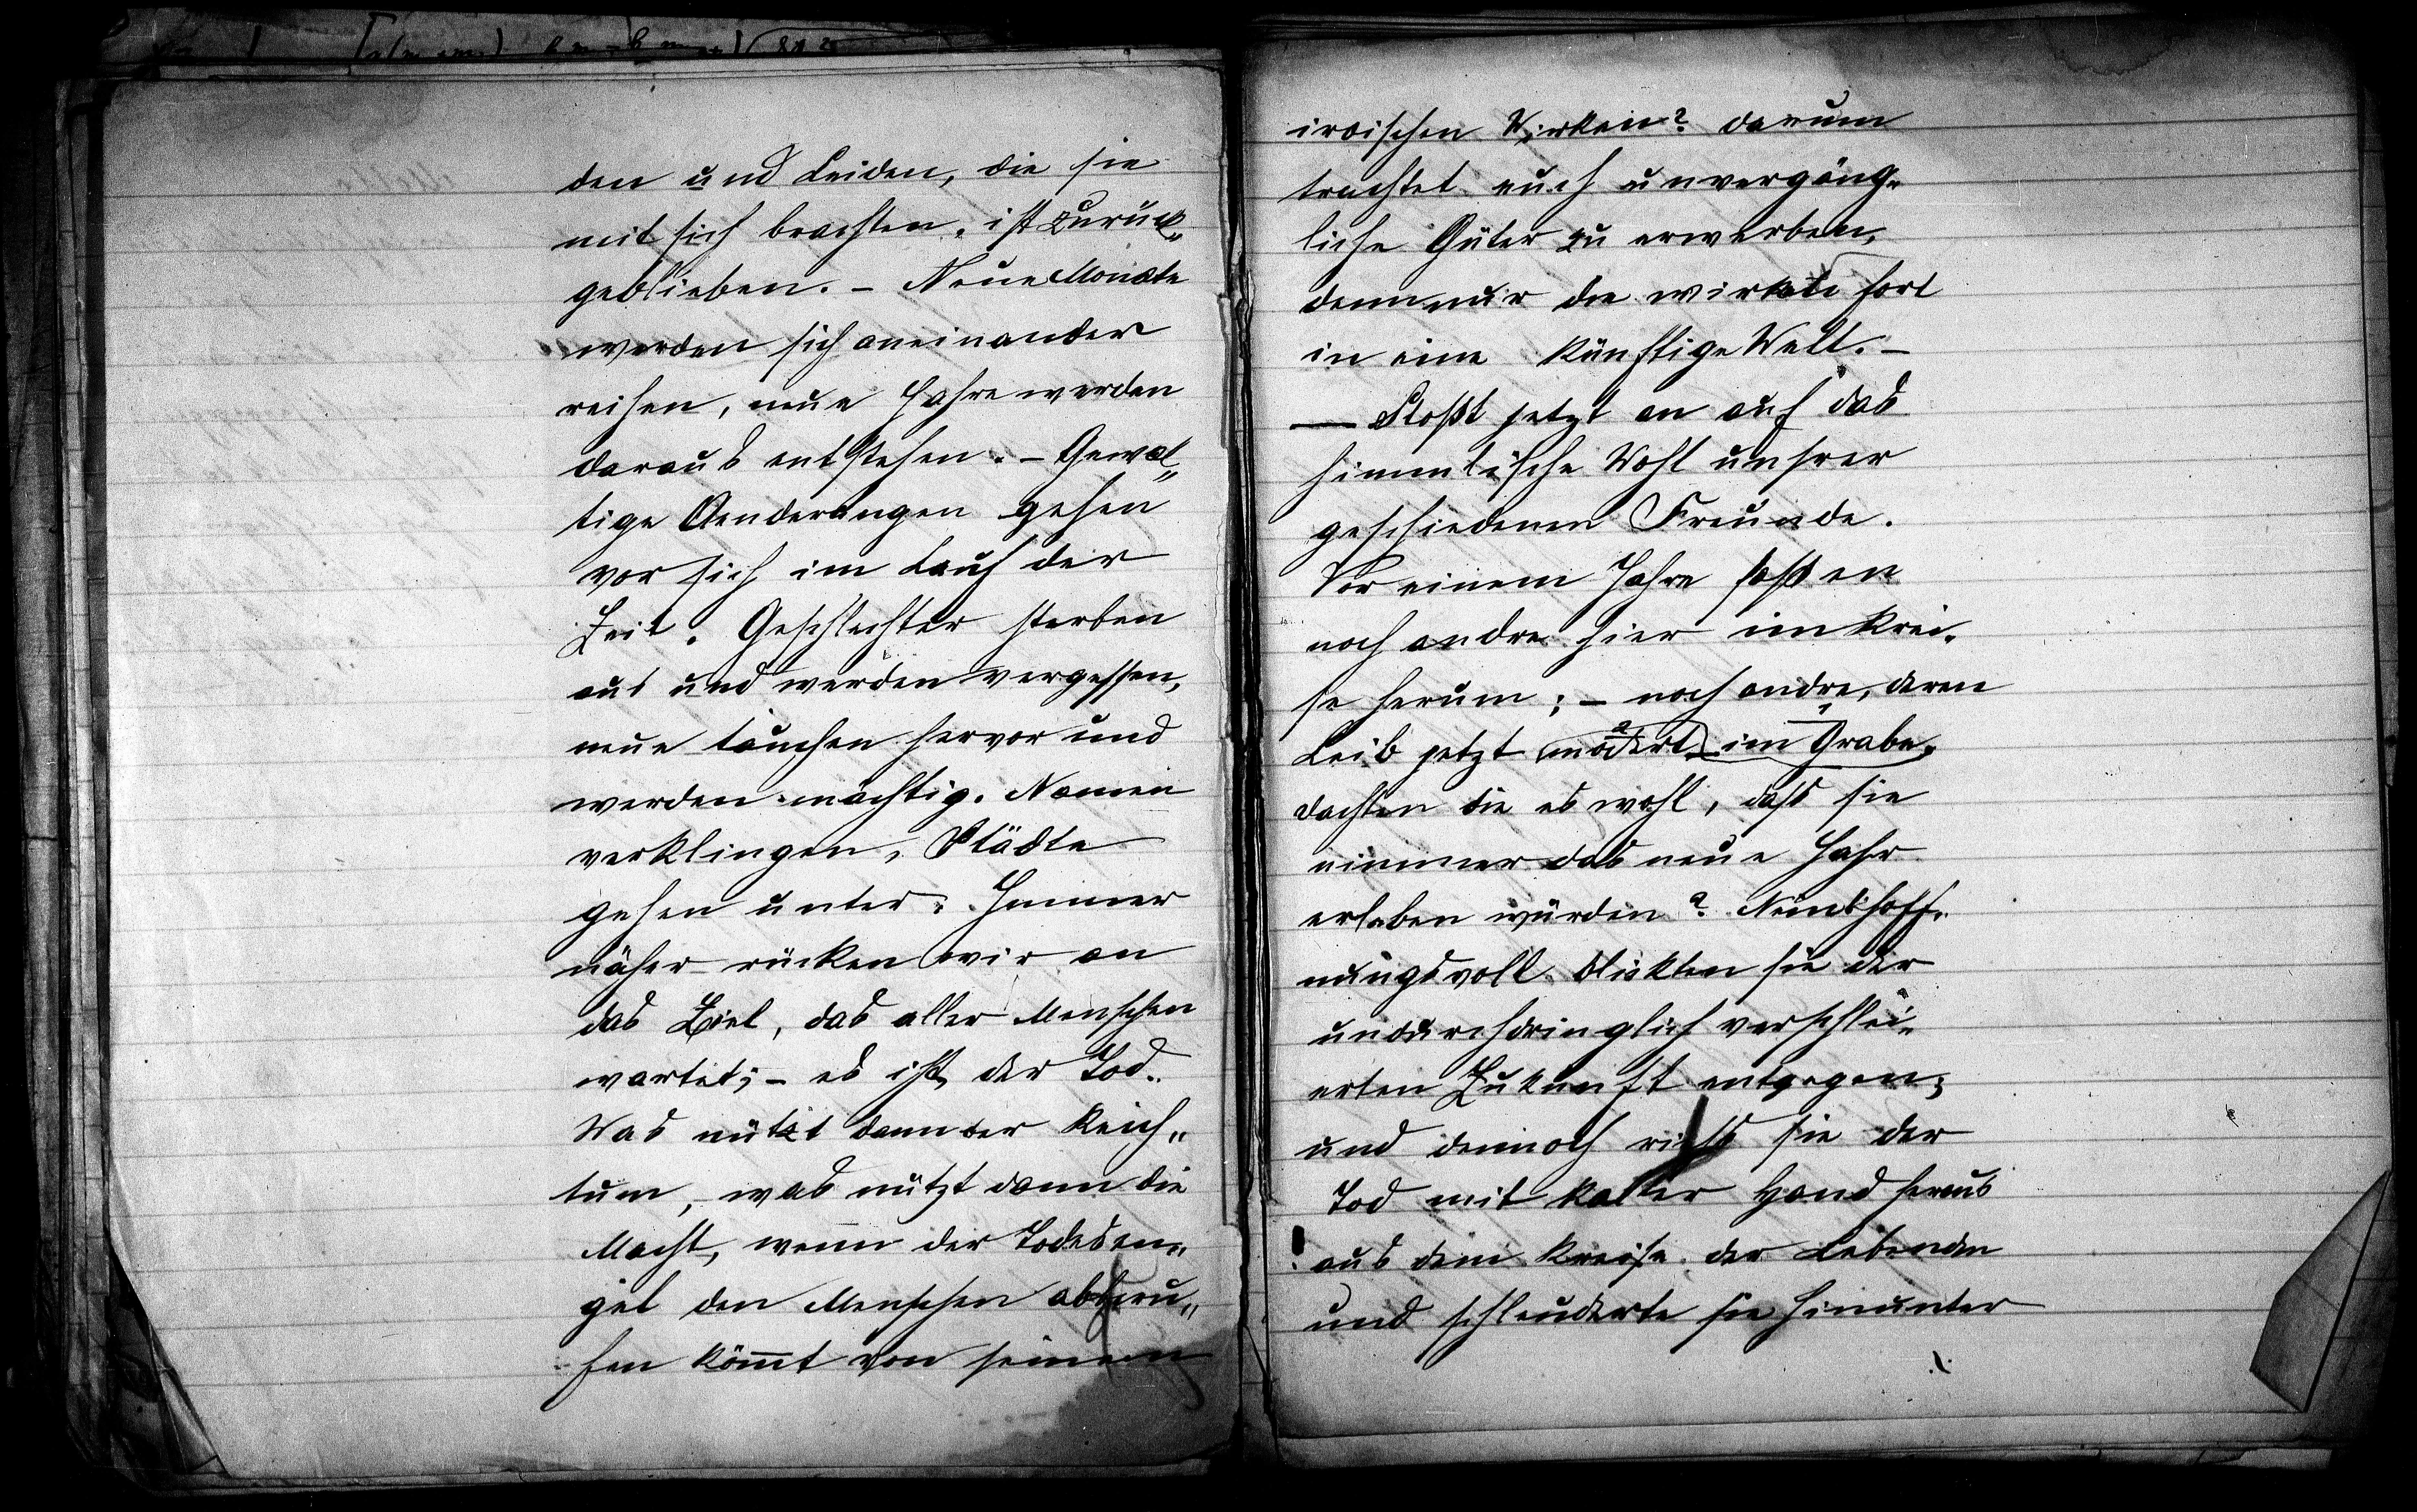 den und Leiden, die sie
mit sich brachten, ist zurück„
geblieben. – Neue Monate
werden sich aneinander
reihen, neue Jahre werden
daraus entstehen. – Gewal„
tige Aenderungen gehen
vor sich im Lauf der
Zeit. Geschlechter sterben
aus und werden vergessen,
neue tauchen hervor und
werden mächtig. Namen
verklingen, Städte
gehen unter. Immer
näher rücken wir an
das Ziel, das aller Menschen
wartet; – es ist der Tod.
Was nützt dann der Reich„
tum, was nützt dann die
Macht, wenn der Todesen„
gel den Menschen abberu„
fen kom̄t von seinem
irdischen Wirken? darum
trachtet euch unvergäng„
liche Güter zu erwerben,
denn nur die wirken fort
in eine künftige Welt. –
— Stoßt jetzt an auf das
himmlische Wohl unsrer
geschiedenen Freunde.
Vor einem Jahre saßen
noch andre hier im Krei„
se herum; – noch andre, deren
Leib jetzt modert im Grabe.
dachten die es wohl, dass sie
nimmer das neue Jahr
erleben würden? Nein! hoff„
nungsvoll blickten sie der
undurchdringlich verschlei„
erten Zukunft entgegen;
und dennoch riss sie der
Tod mit kalter Hand heraus
aus dem Kreise der Lebenden
und schleuderte sie hinunter